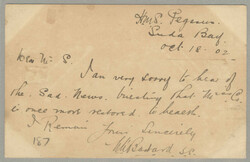 H.M.S. Pegasus
Suda Bay
Oct. 18. 02
Dear Mr S.
I am very sorry to hear of
the Sad News. trusting that Mr
is once more restored to health.
I Remain Yours Sincerely